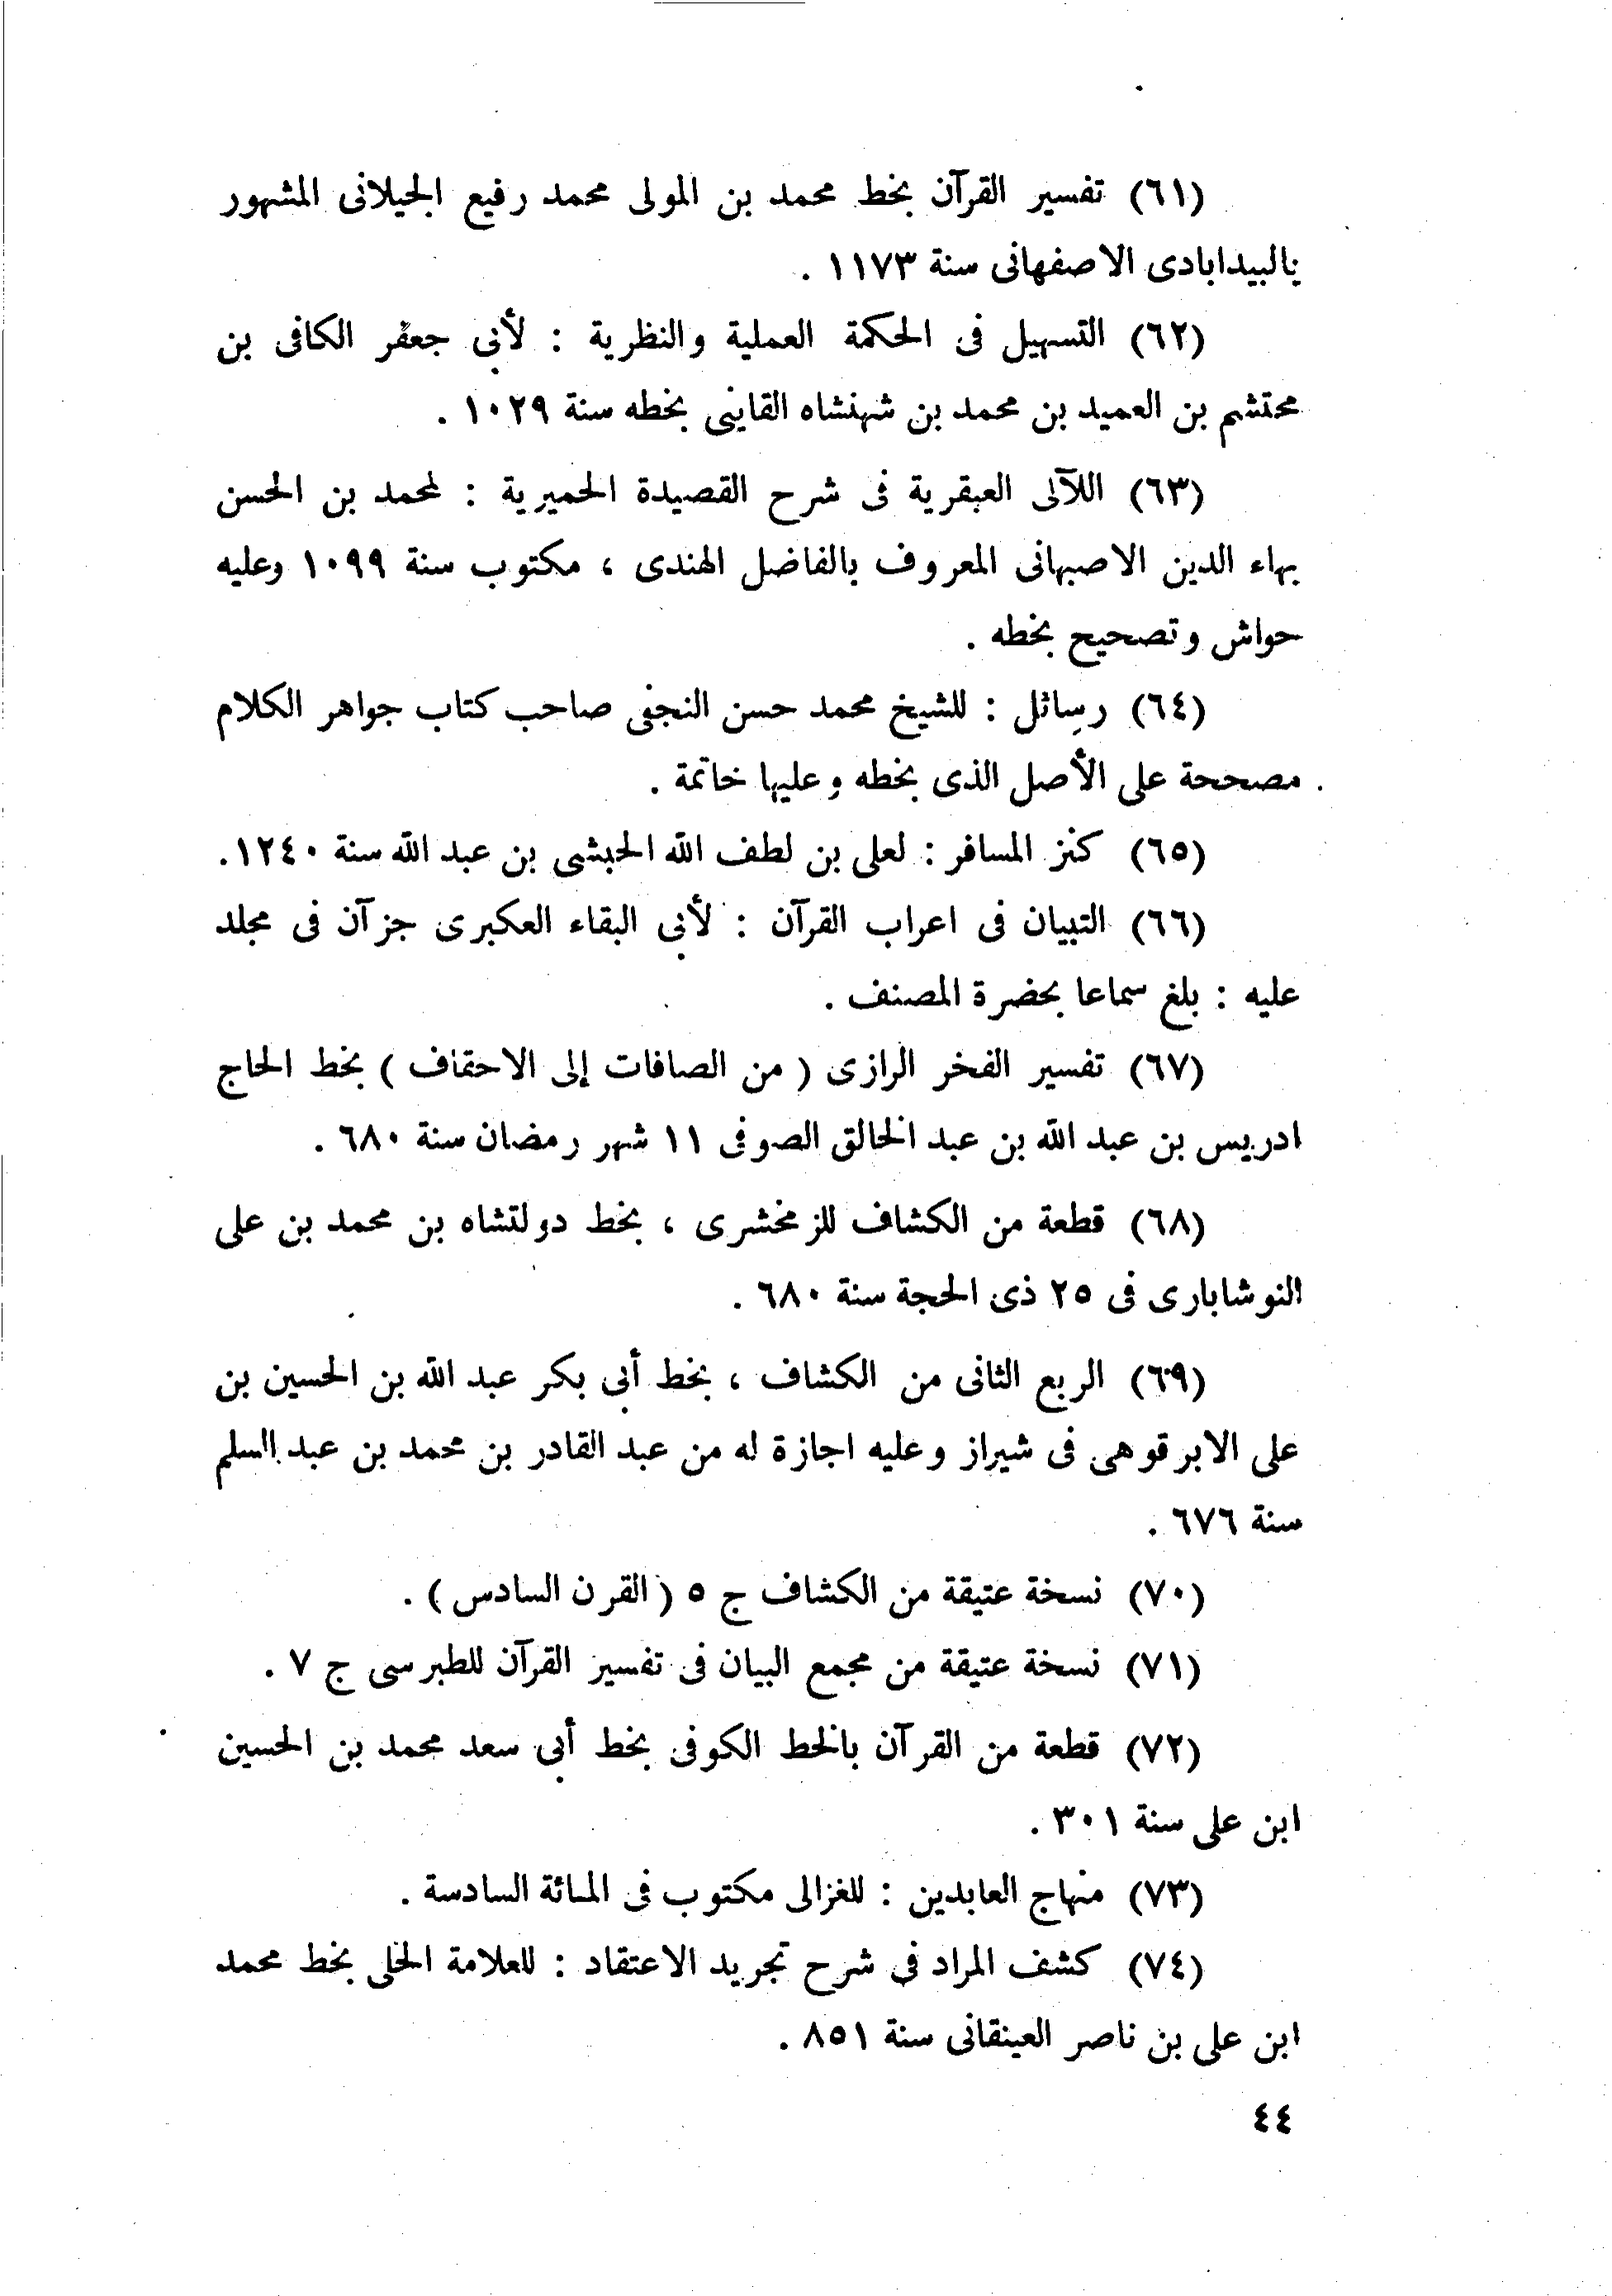 (٦١) تفسير القرآن بخط محمد بن المولى محمد رفيع الجيلانى المشهور
بالبيدابادى الاصفهانى سنة ١١٧٣ .
(٦٢) التسهيل فى الحكمة العملية والنظرية : لأبى جعفر الكافى بن
محتشم بن العميد بن محمد بن شهنشاه القاينى بخطه سنة ١٠٢٩ .
(٦٣) اللآلى العبقرية فى شرح القصيدة الحميرية : لمحمد بن الحسن
بهاء الدين الاصبهانى المعروف بالفاضل الهندى ، مكتوب سنة ١٠٩٩ وعليه
حواش وتصحيح بخطه .
(٦٤) رسائل : للشيخ محمد حسن النجفى صاحب كتاب جواهر الكلام
مصححة على الأصل الذى بخطه وعليها خاتمة .
(٦٥) كنز المسافر : لعلى بن لطف الله الحبشى بن عبد الله سنة ١٢٤٠.
(٦٦) التبيان فى اعراب القرآن : لأبى البقاء العكبرى جزآن فى مجلد
عليه : بلغ سماعا بحضرة المصنف .
(٦٧) تفسير الفخر الرازى ( من الصافات إلى الاحقاف ) بخط الحاج
ادريس بن عبد الله بن عبد الخالق الصوفى ١١ شهر رمضان سنة ٦٨٠ .
(٦٨) قطعة من الكشاف للزمخشرى ، بخط دولتشاه بن محمد بن على
النوشابارى فى ٢٥ ذى الحجة سنة ٦٨٠ .
(٦٩) الربع الثانى من الكشاف ، بخط أبى بكر عبد الله بن الحسين بن
على الابرقوهى فى شيراز وعليه اجازة له من عبد القادر بن محمد بن عبد السلم
سنة ٦٧٦ .
(٧٠) نسخة عتيقة من الكشاف ج ٥ ( القرن السادس ) .
(٧١) نسخة عتيقة من مجمع البيان فى تفسير القرآن للطبرسى ج ٧ .
(٧٢) قطعة من القرآن بالخط الكوفى بخط أبى سعد محمد بن الحسين
ابن على سنة ٣٠١ .
(٧٣) منهاج العابدين : للغزالى مكتوب فى المائة السادسة .
(٧٤) كشف المراد فى شرح تجريد الاعتقاد : للعلامة الحلى بخط محمد
ابن على بن ناصر العينقانى سنة ٨٥١ .
٤٤